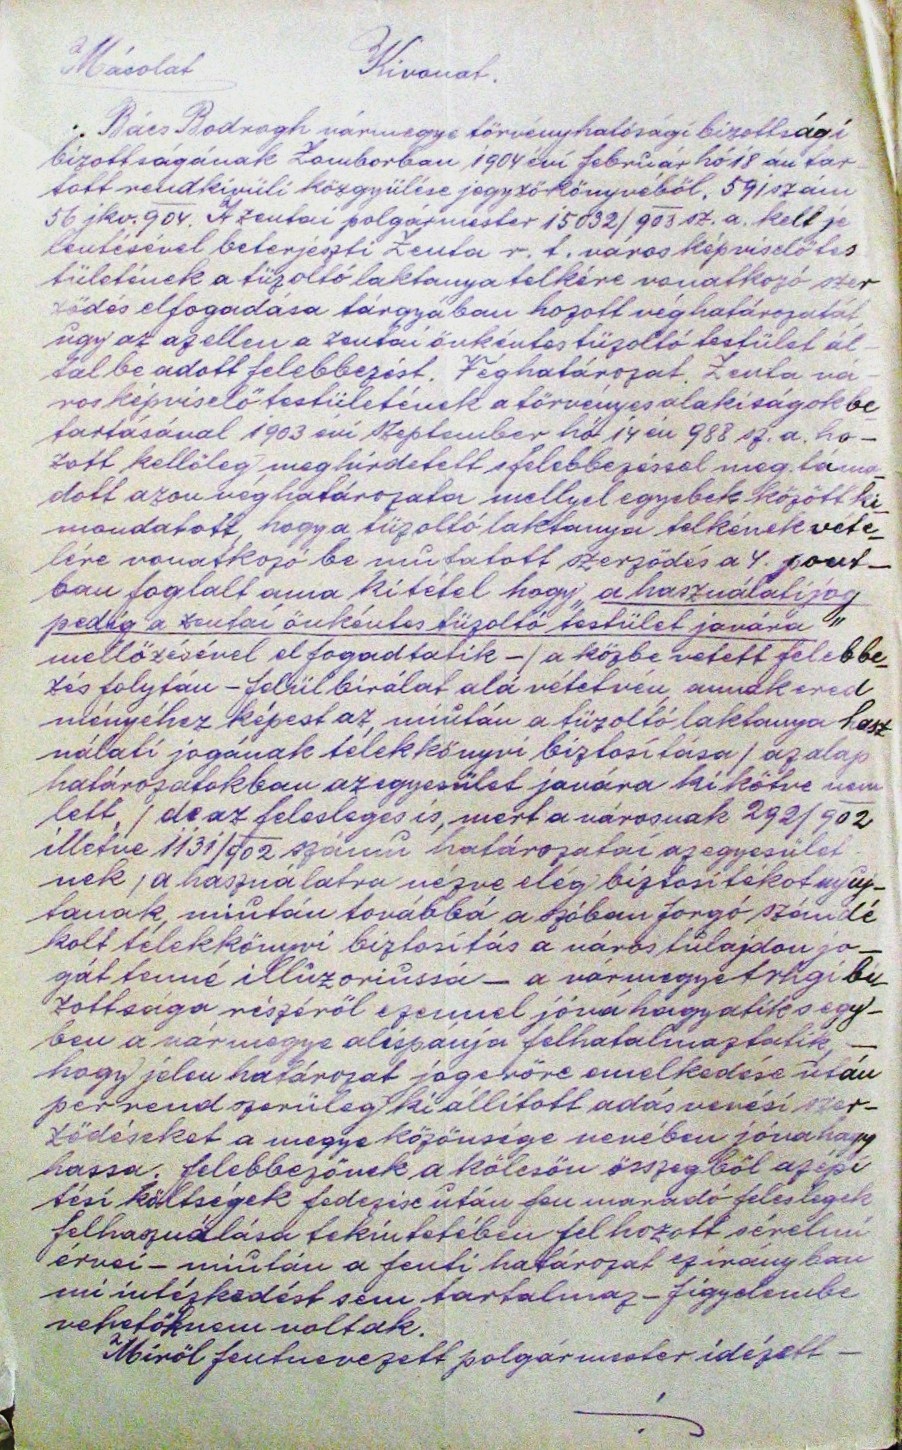 Mácolat Kivonat.
Bács Bodrogh vármegye törvényhatósági bizottsági
bizottságának Zomborban 1904 évi február hó 18 án tar-
tott rendkivüli közgyülése jegyzökönyvéböl. 59/szám
56 jkv. 904. A zentai polgármester 15032/903 sz. a. kelt je
lentésével beterjeszti Zenta r. t. város képviselötes
tületének a tüzoltó laktanya telkére vonatkozó szer
zödés elfogadása tárgyában hozott véghatározatát
ugy az azellen a zentai önkentes tüzoltó testület ál-
tal be adott felebbezést. Véghatározat. Zenta vá-
ros képviselö testületének a törvényes alakiságok be
tartásával 1903 evi szeptember hó 14 én 988 sz. a. ho-
zott kellöleg meghirdetett s felebbezéssel meg táma-
dott azon véghatározata mellyel egyebek között ki-
mondatott, hogy a tüzoltó laktanya telkének véte-
lére vonatkozó be mutatott szerzödés a 4. pont-
ban foglalt ama kitétel hogy „a használati jog
pedig a zentai önkéntes tüzoltó testület javára"
mellözésével elfogadtatik - / a közbe vetett felebbe-
zés folytán - felülbirálat alá vétetvén, annak ered
ményéhez képest az, miután a tüzoltó laktanya hasz
nálati jogának télekkönyvi biztosítása / az alap
határozatokban az egyesület javára kikötve nem
lett, / de az felesleges is, mert a városnak 292/902
illetve 1131/902 számu határozatai az egyesület
nek, a használatra nézve elég biztositékot nyuj-
tanak, miután továbbá a szóban forgó szándé
kolt télekkönyvi biztosítás a város tulajdon jo-
gát tenné illuzoriussa - a vármegye trhgi bi-
zottsága részéröl ezennel jóvá hagyatik s egy-
ben a vármegye alispánja felhatalmaztatik, -
hogy jelen határozat jogeröre emelkedése után
perrend szerüleg kiállitott adásvevési szer-
zödéseket a megye közönsége nevében jóvahagy
hassa. felebbezönek a kölcsön összegböl az épi
tési költségek fedezise után fen maradó feleslegek
felhasználása tekintetében felhozott sérelmi
érvei - miután a fenti határozat ezirányban
mi intézkedést sem tartalmaz - figyelembe
vehetök nem voltak.
Miröl fentnevezett polgármester idézett -